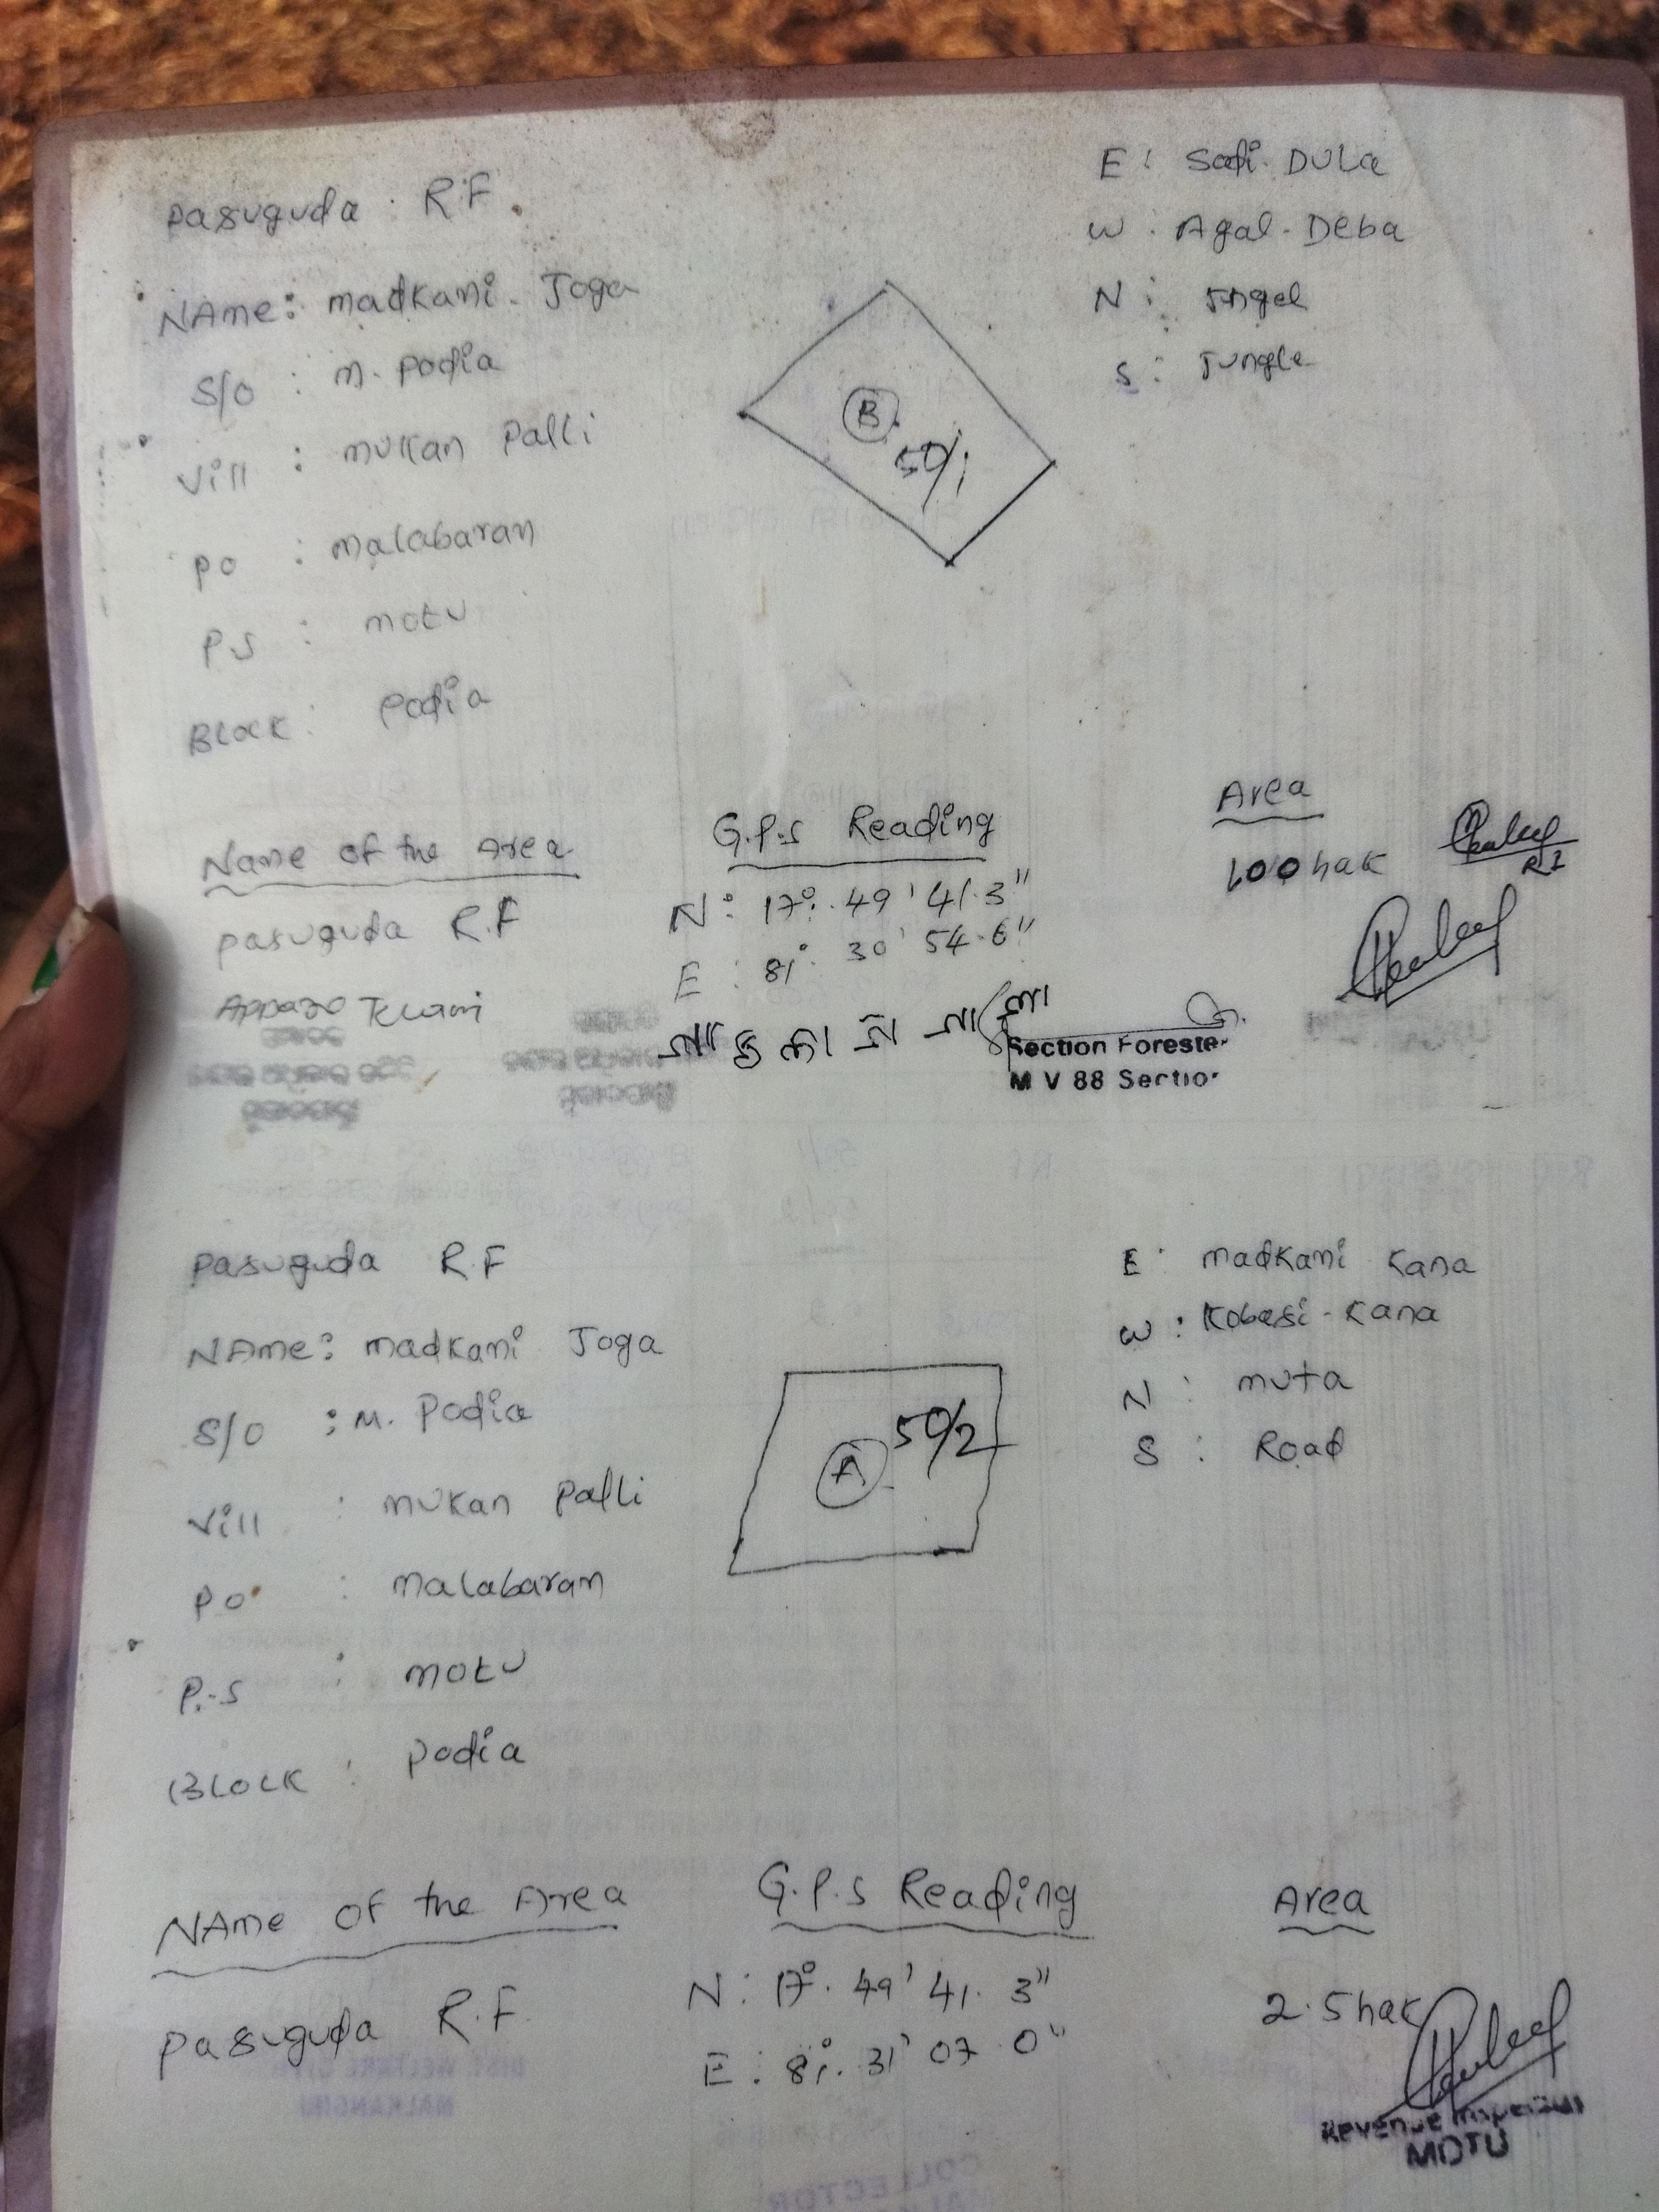 Pasuguda R.F.
NAme: madkami. Joga
S/o : m. podia
Vill : mukan palli
po : malabaran
P.S : motu
BLock: podia
E: Sodi. DULa
W. Agal. Deba
N: Jngel
S: Jungle
B
50/1
Name of the Area
G.P.S Reading
Area
pasuguda R.F
N: 17°. 49' 41.3"
E: 81°. 30' 54.6"
100 hak
RI
Section Foreste
M V 88 Sectio
Pasuguda R.F
NAme: madkami Joga
S/o : M. Podia
Vill : mukan palli
Po : malabaran
P.S : motu
BLOCK : podia
E: madkami kana
W: Kobasi-kana
N: muta
S: Road
A
50/2
NAme of the Area
G.P.S Reading
Area
Pasuguda R.F.
N: 17°. 49' 41.3"
E: 81°. 31' 07.0"
2.5 hak
Revenue Inspector
MOTU